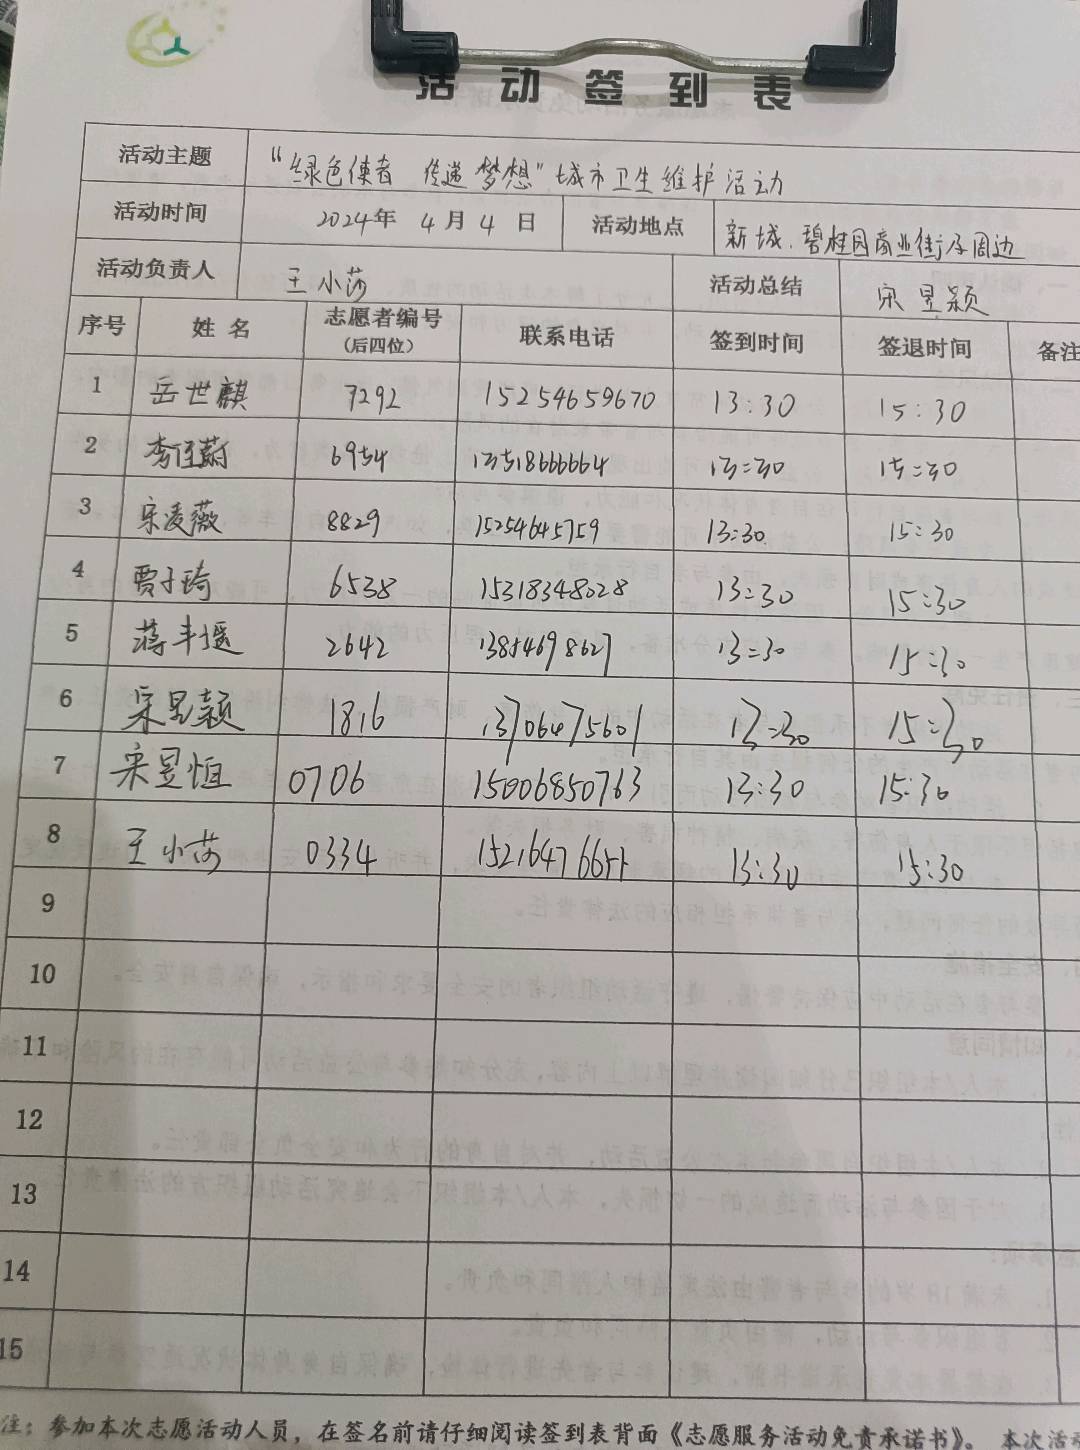 活动签到表
活动主题 “绿色使者 传递梦想”城市卫生维护活动
活动时间 2024年 4月 4日 活动地点 新城.碧桂园商业街及周边
活动负责人 王小莎 活动总结 宋昱颖
序号 姓名 志愿者编号(后四位) 联系电话 签到时间 签退时间 备注
1 岳世麒 7292 15254659670 13:30 15:30
2 6954 13518666664 13:30 15:30
3 宋凌薇 8829 15254645759 13:30 15:30
4 贾子琦 6538 15318348028 13:30 15:30
5 蒋丰遥 2642 13854698627 13:30 15:30
6 宋昱颖 1816 13706475601 13:30 15:30
7 宋昱恒 0706 15006850763 13:30 15:30
8 王小莎 0334 13:30 15:30
9
10
11
12
13
14
15
注：参加本次志愿活动人员，在签名前请仔细阅读签到表背面《志愿服务活动免责承诺书》。 本次活动